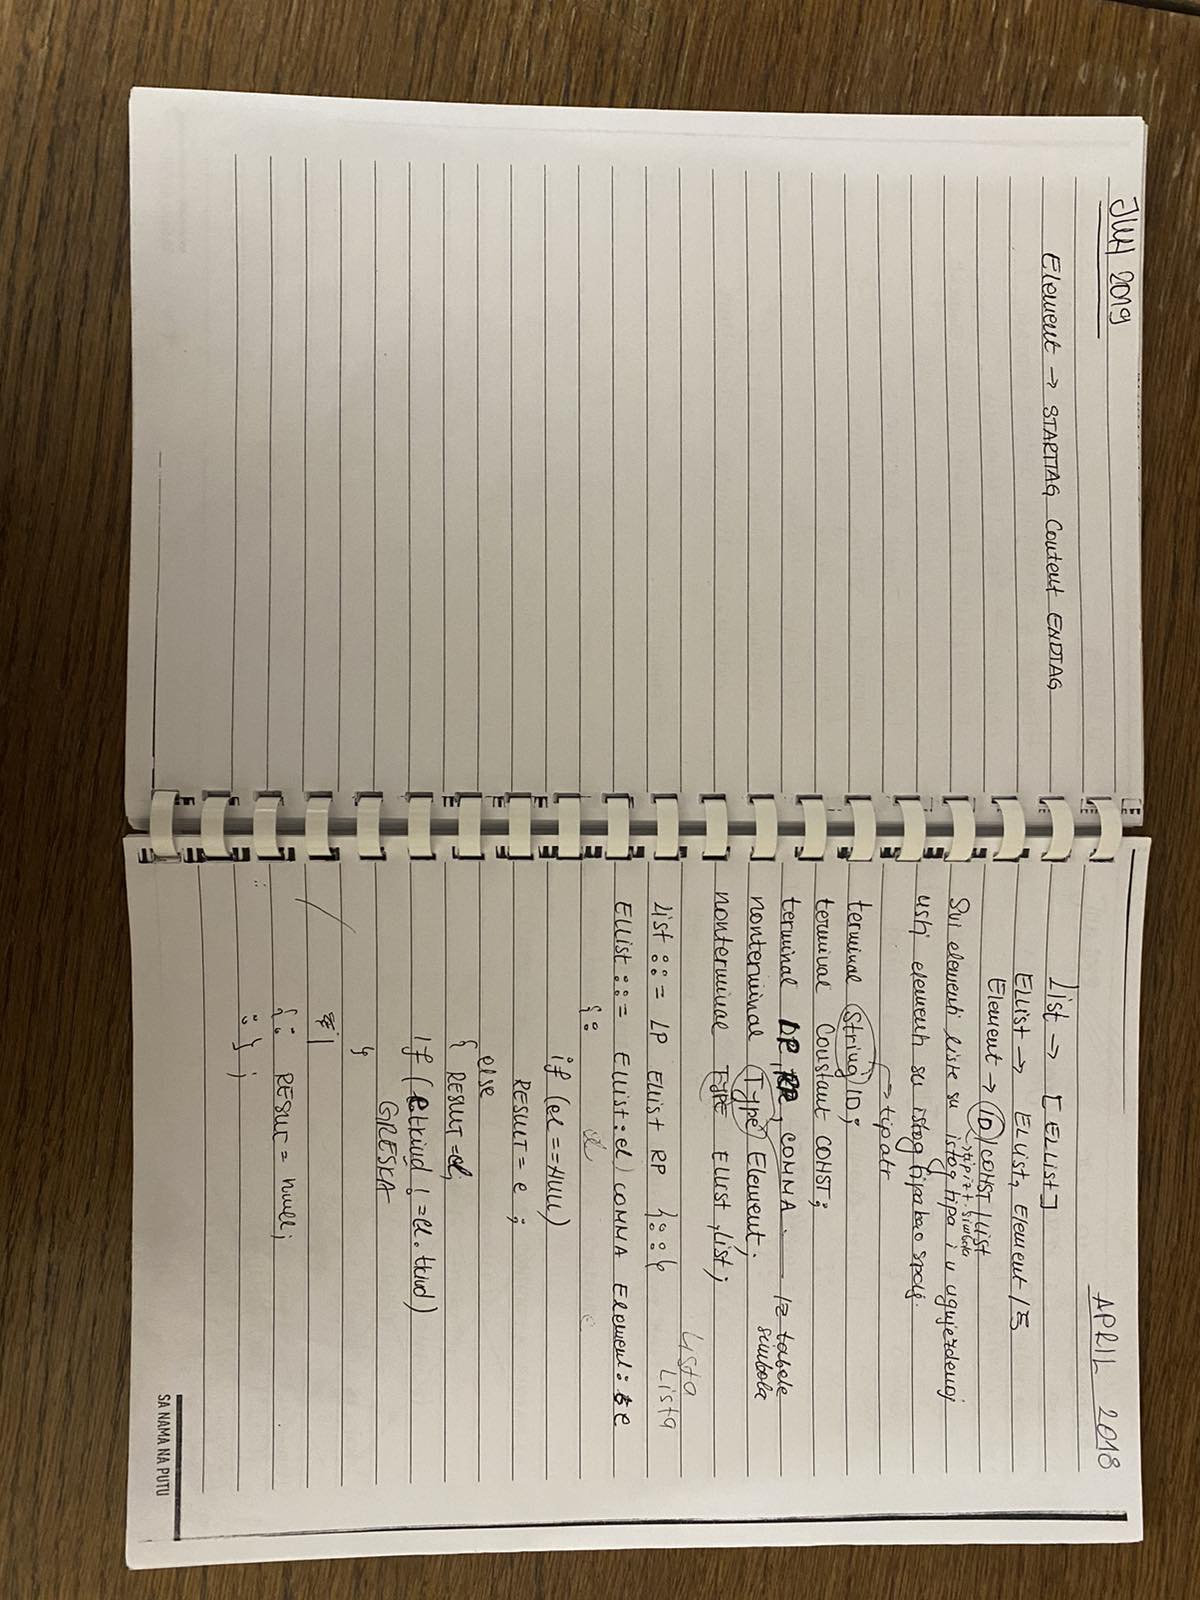 JUH 2019
Element → STARTTAG Content ENDTAG
APRIL 2018
List → [ELLIST]
EList → EList, Element / ε
Element → ID / CONST / List
→ tip iz t. simbola
Svi elementi liste su istog tipa i u ugnježdenoj
listi elementi su istog tipa kao spolj.
→ tip atr
terminal String ID;
terminal Constant CONST;
terminal LP, RP, COMMA. iz tabele
simbola
nonterminal Type Element;
nonterminal TYPE EList, List;
Lista
List ::= LP EList RP {::} Lista
EList ::= EList:el COMMA Element:e
{: el e
if (el == NULL)
RESULT = e;
else
{ RESULT = el;
if (e.tkind != el.tkind)
GREŠKA
}
|
{: RESULT = null;
:} ;
SA NAMA NA PUTU